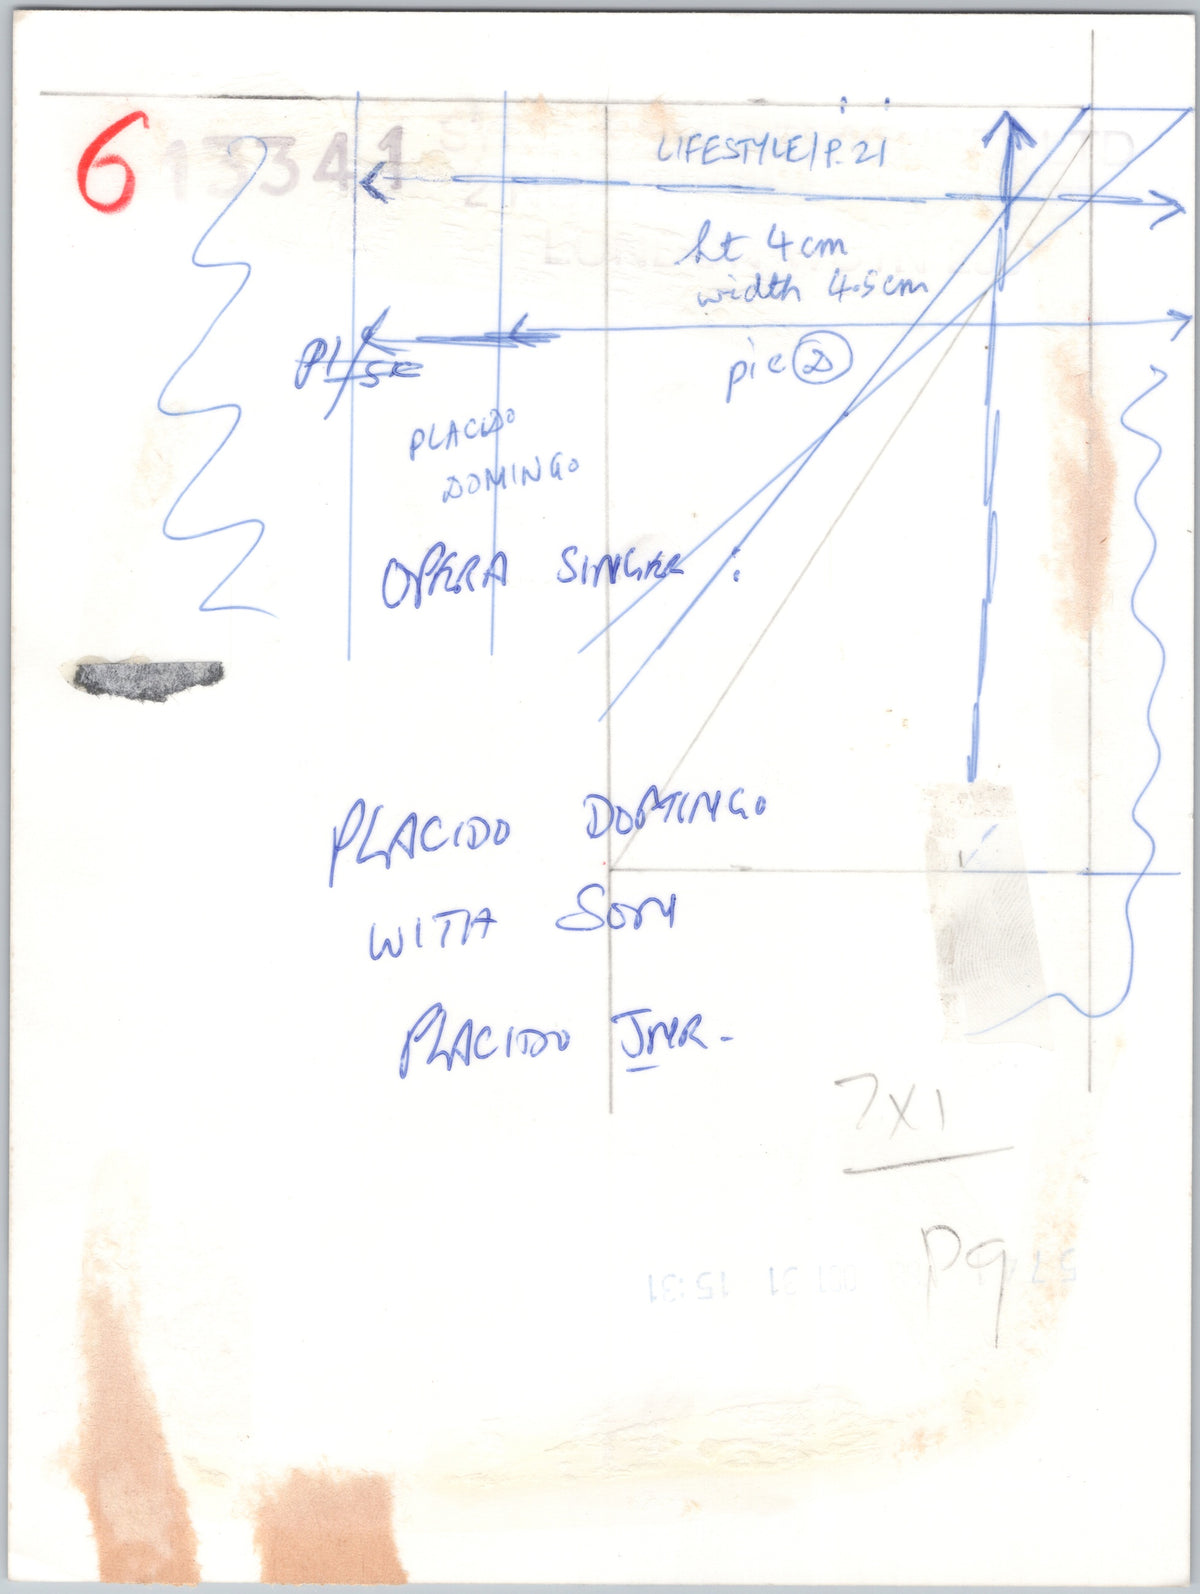 6 13341
LIFESTYLE/P.21
ht 4cm
width 4.5cm
pic 2
PLACIDO
DOMINGO
OPERA SINGER :
PLACIDO DOMINGO
WITH SON
PLACIDO JNR.
7X1
P9
31 15:31